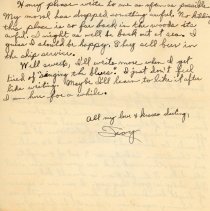 Honey please write to me as often as possible.
My moral has dropped something awful. No kidding
this place is so far back in the woods it's
awful. I might as well be back out at sea. I
guess I should be happy. They sell beer in
the ship service.
Well sweets, I'll write more when I get
tired of "singing the blues". I just don't feel
like writing. Maybe I'll learn to like it after
I am here for a while.
All my love & kisses darling,